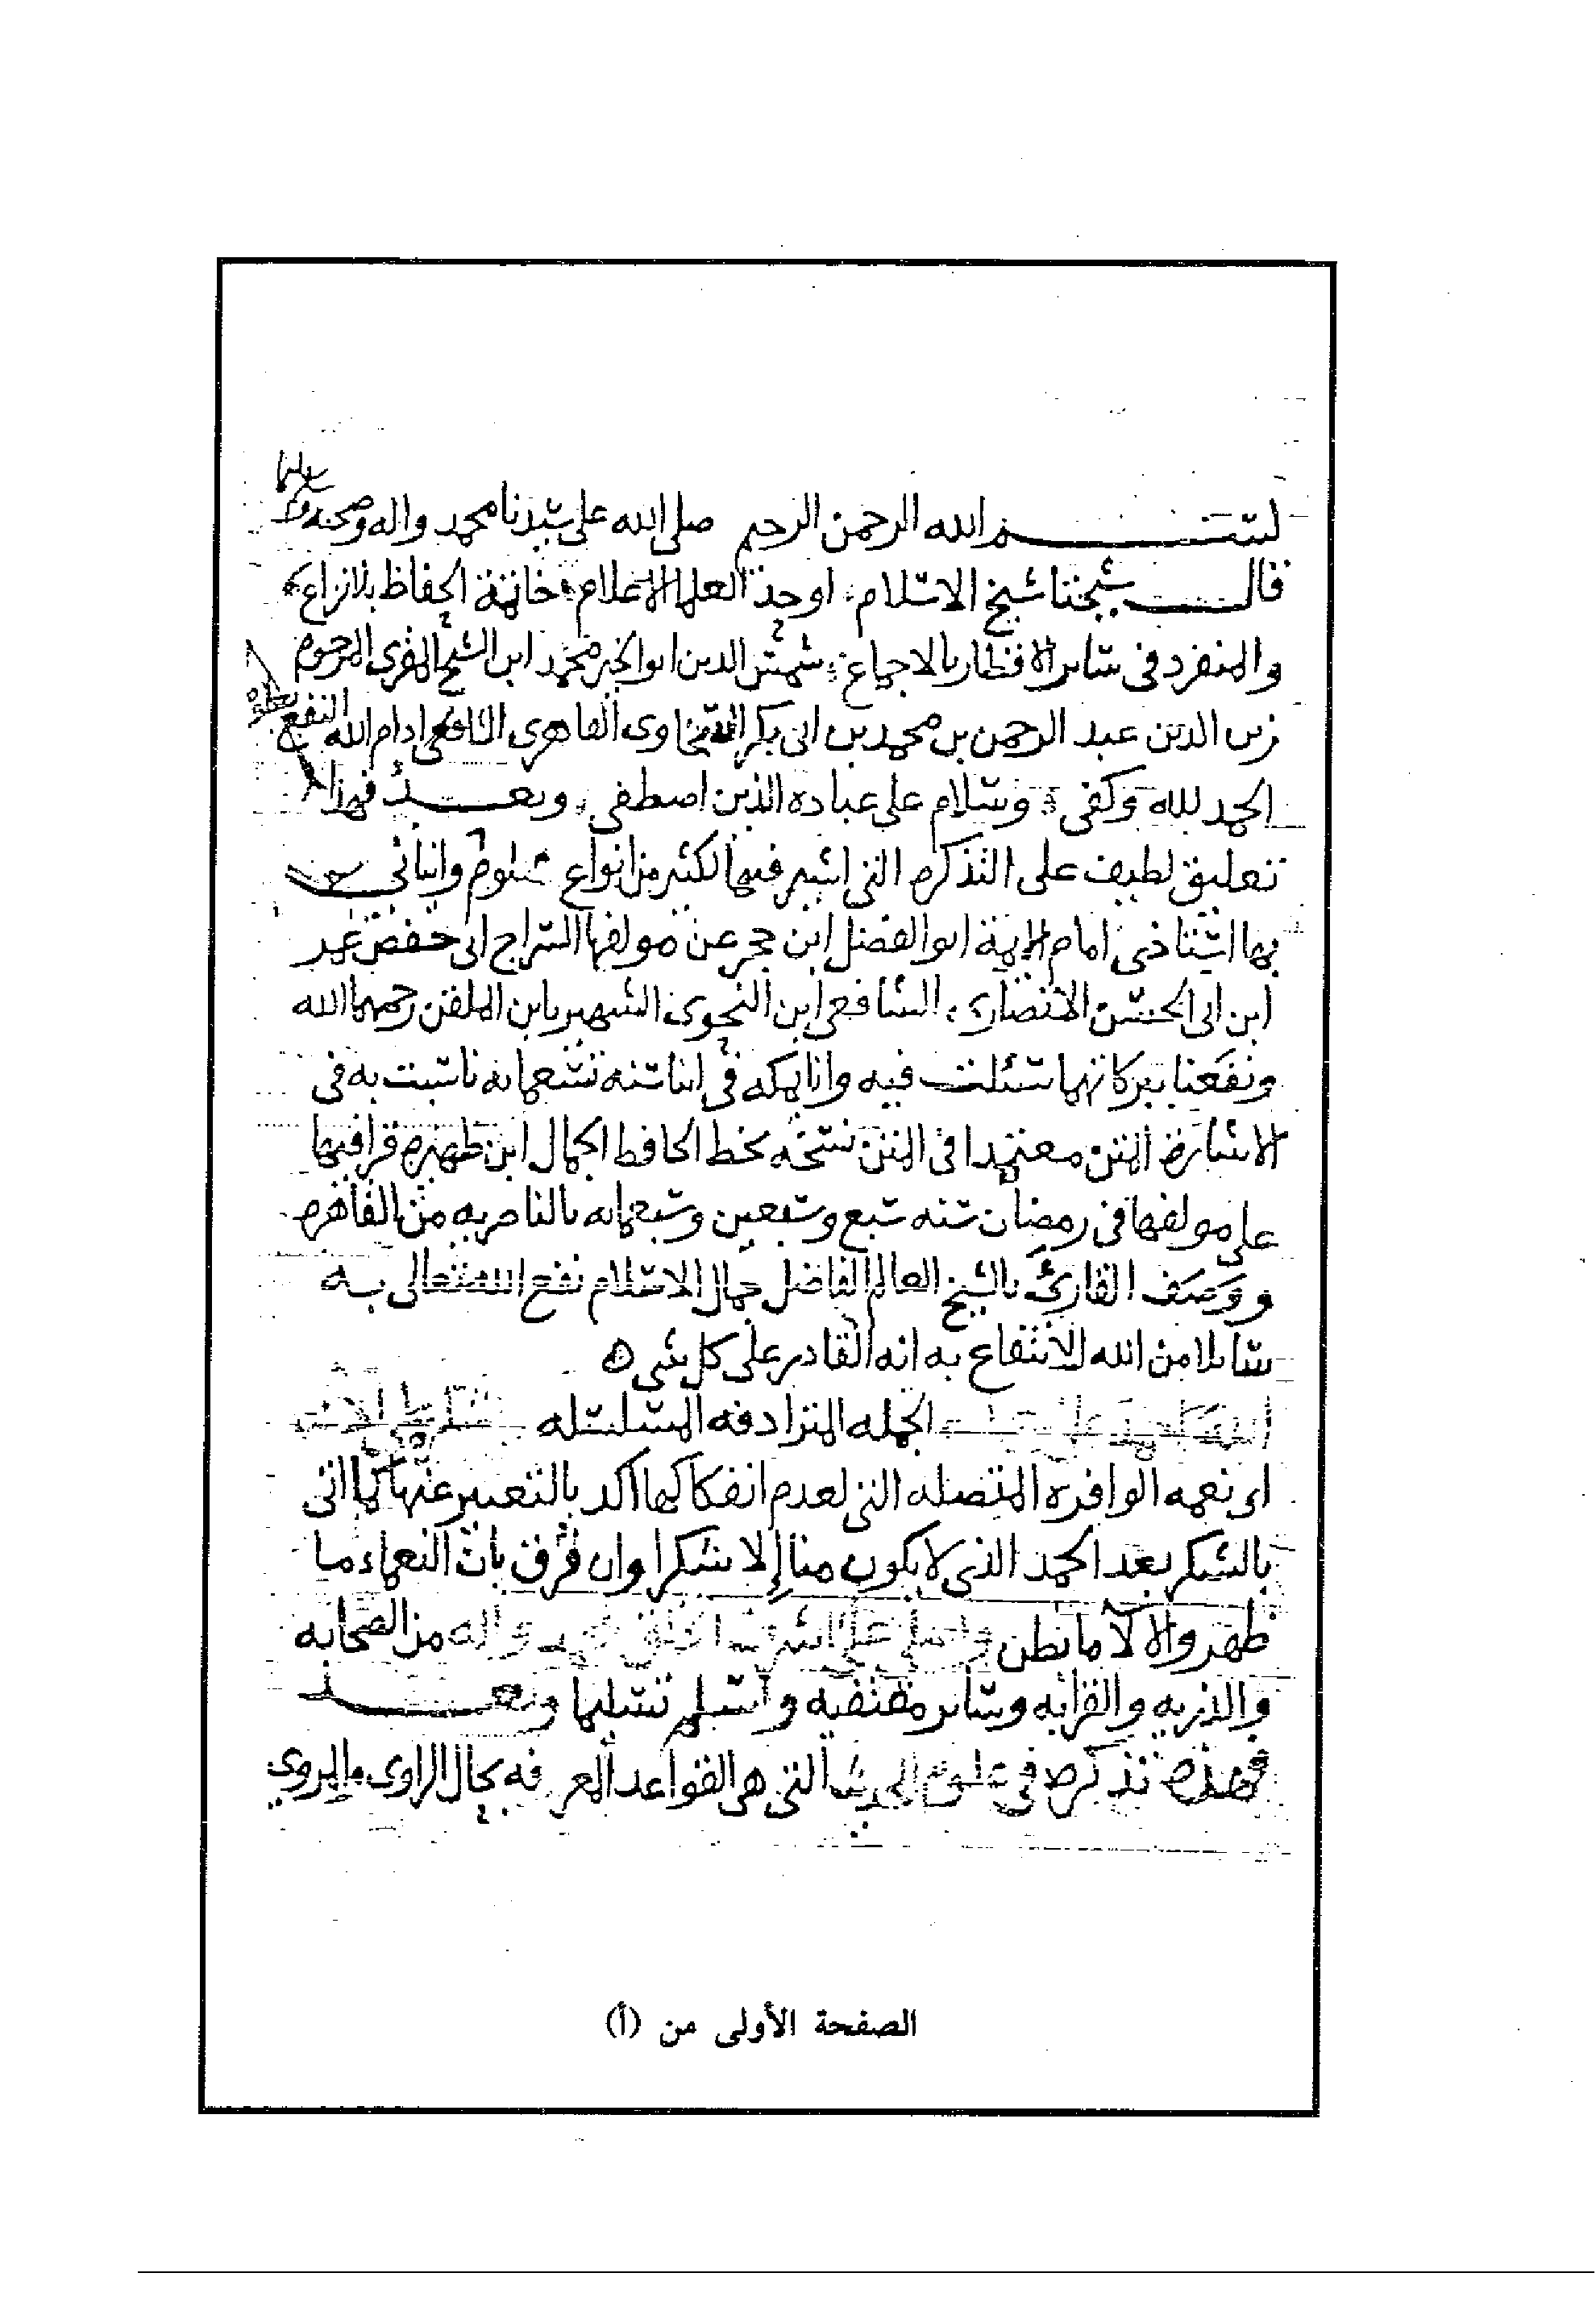 بسم الله الرحمن الرحيم صلى الله على سيدنا محمد واله وصحبه وسلم
قال شيخنا شيخ الاسلام اوحد العلما الاعلام خاتمة الحفاظ بلا نزاع
والمنفرد في ساير الاقطار بالاجماع شمس الدين ابو الخير محمد ابن الشيخ المقرى المرحوم
زين الدين عبد الرحمن بن محمد بن ابى بكر السخاوى القاهرى الشافعى ادام الله النفع بعلومه
الحمد لله وكفى وسلام على عباده الذين اصطفى وبعد فهذا
تعليق لطيف على التذكره التى اشير فيها لكثير من انواع علومه وانبانى
بها استاذى امام الايمة ابو الفضل ابن حجر عن مولفها السراج ابى حفص عمر
ابن ابى الحسن الانصارى الشافعى ابن النحوى الشهير بابن الملقن رحمهما الله
ونفعنا ببركاتهما سئلت فيه وانا بمكه في اثنا سنه
الاشارة المتن معتمدا فى المتن نسخه بخط الحافظ الجمال ابن ظهيره قرا فيها
على مولفها فى رمضان سنه سبع وسبعين وسبعمايه بالناصريه من القاهره
ووصف القارئ بالشيخ العالم الفاضل جمال الاسلام نفع الله تعالى به
سايلا من الله الانتفاع به انه القادر على كل شى
الله احمد على الجمله المترادفه المتسلسله
اى نعمه الوافره المتصله التى لعدم انفكاكها اكد بالتعبير عنها كما اتى
بالشكر بعد الحمد الذى لا يكون منا إلا شكرا وان فرق بان النعماء ما
ظهر والالا ما بطن واصلى على اشرف الخلق محمد واله من الصحابه
والذريه والقرابه وساير مقتفيه واسلم تسليما وبعد
فهذه تذكرة في علوم الحديث التى هى القواعد المعرفه بحال الراوى والمروي
الصفحة الأولى من (أ)